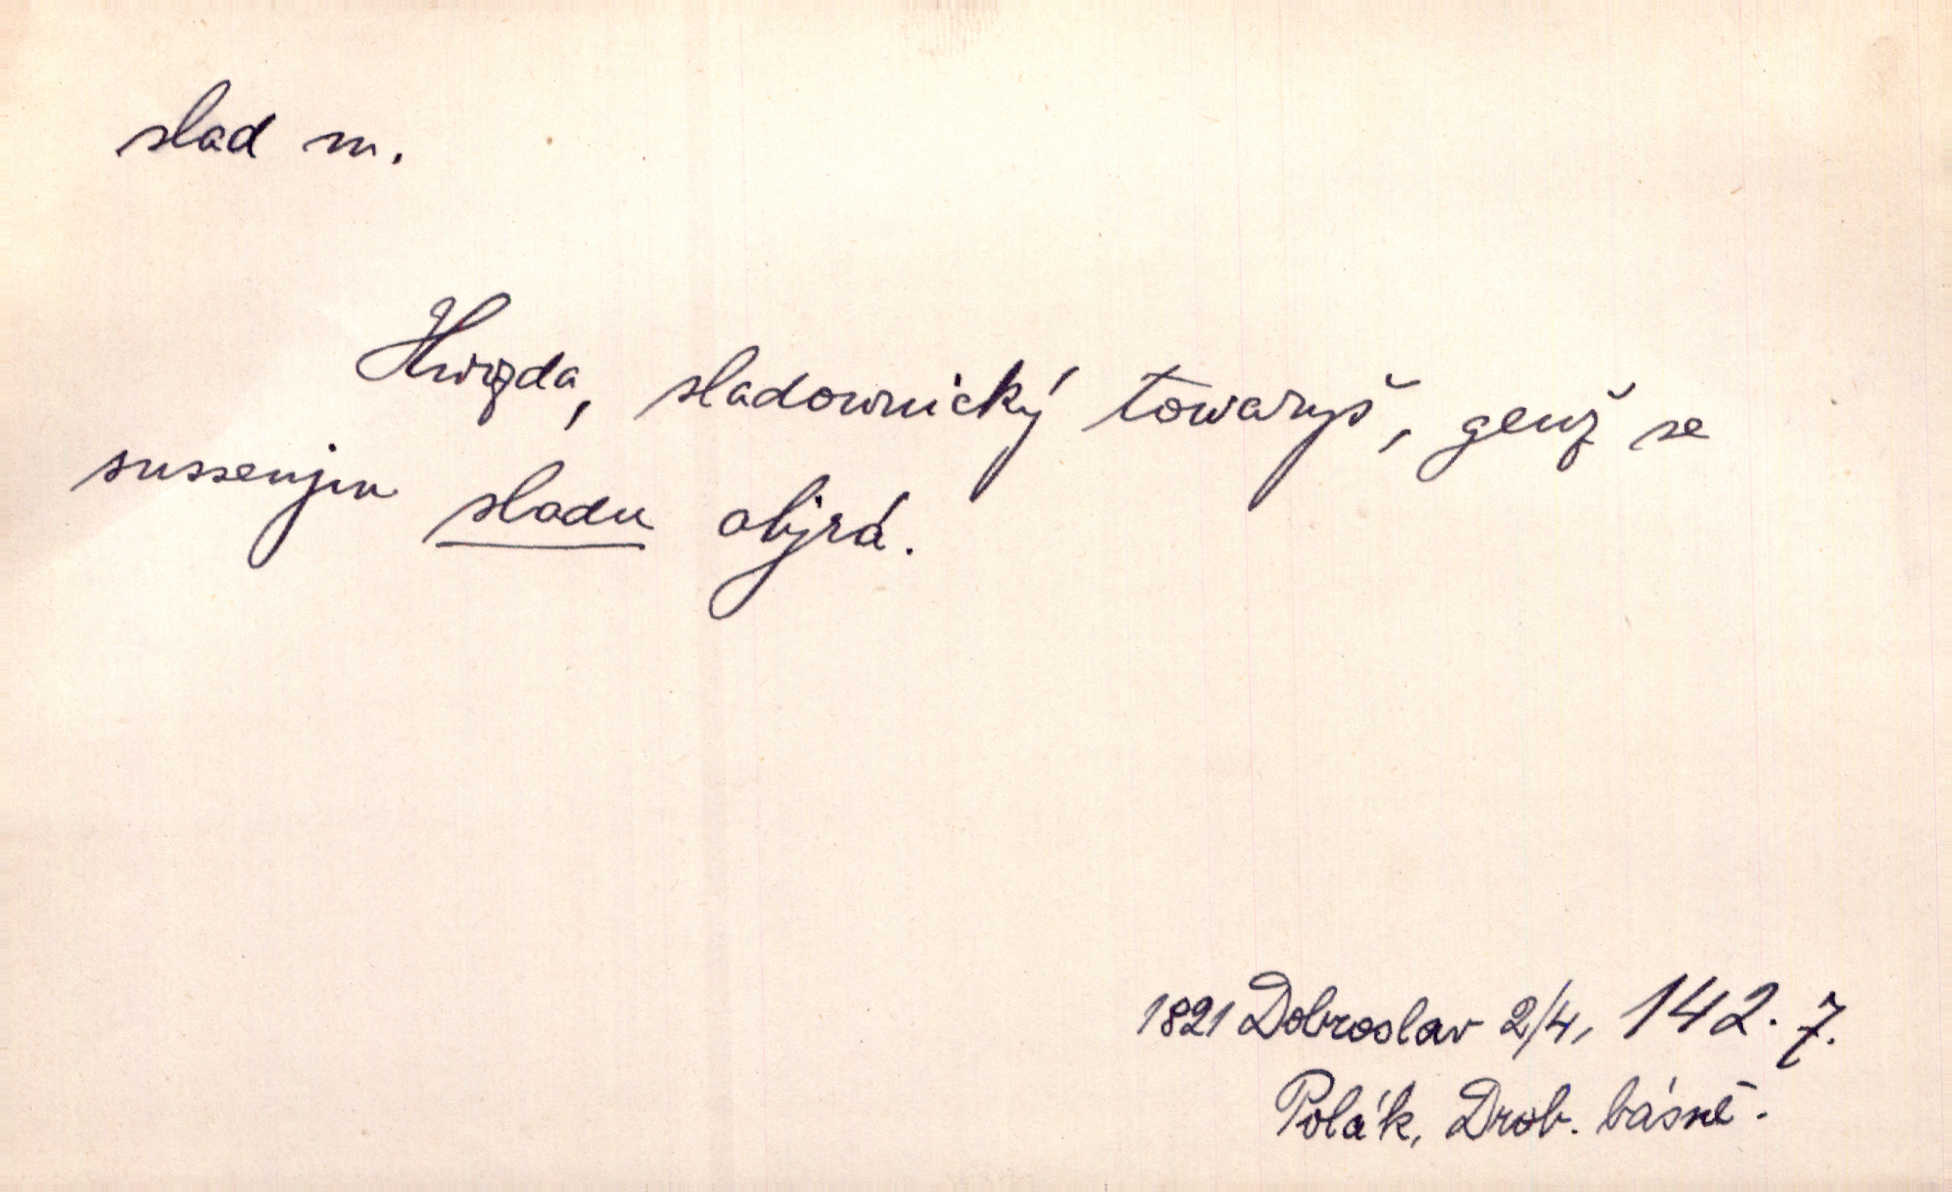 slad m.
Hwozda, sladownický towaryš, genž se
sussenjm sladu objrá.
1821 Dobroslav 2/4, 142. 7.
Polák, Drob. básně.